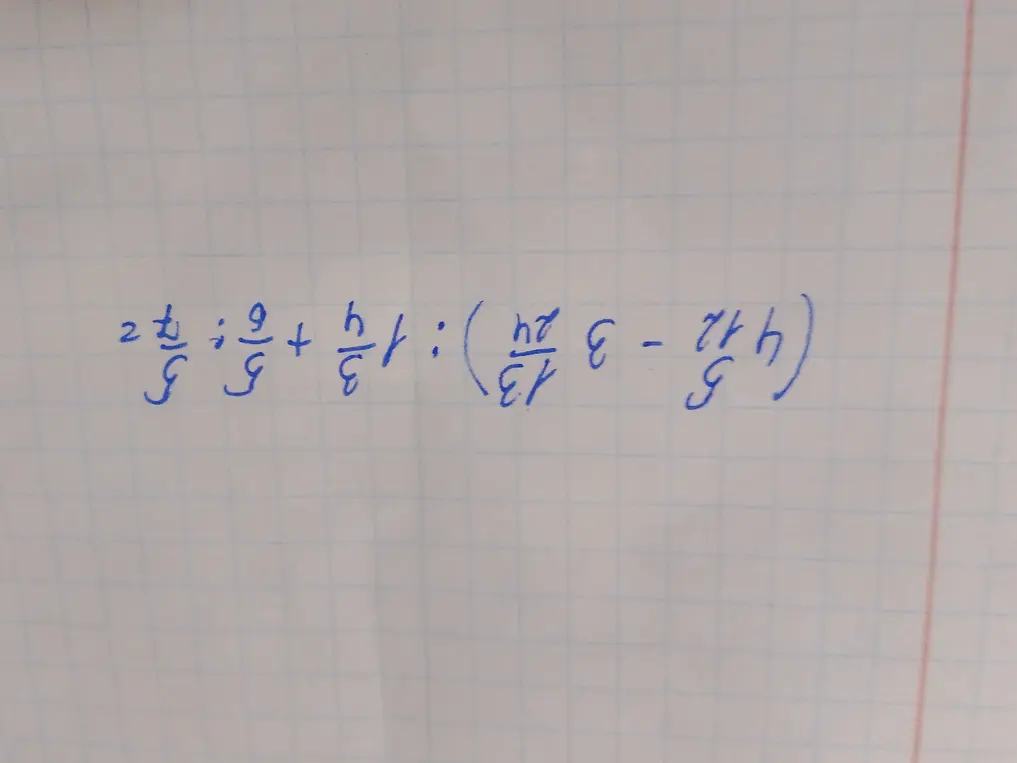 (4 5/12 - 3 13/24) : 1 3/4 + 5/6 : 5/7 =